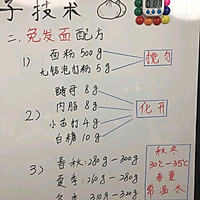 子技术
二.免发面配方
1) 面粉 500g
无铝泡打粉 5g
搅匀
2) 酵母 8g
内脂 8g
小苏打 4g
白糖 10g
化开
3) 春秋:280g—300g
夏季:260g—280g
冬季:310g—320g
秋冬
30℃—35℃
春夏
常温水